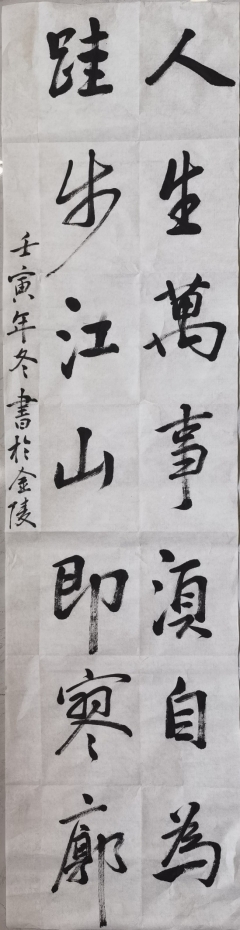 人生萬事須自為
跬步江山即寥廓
壬寅年冬書於金陵